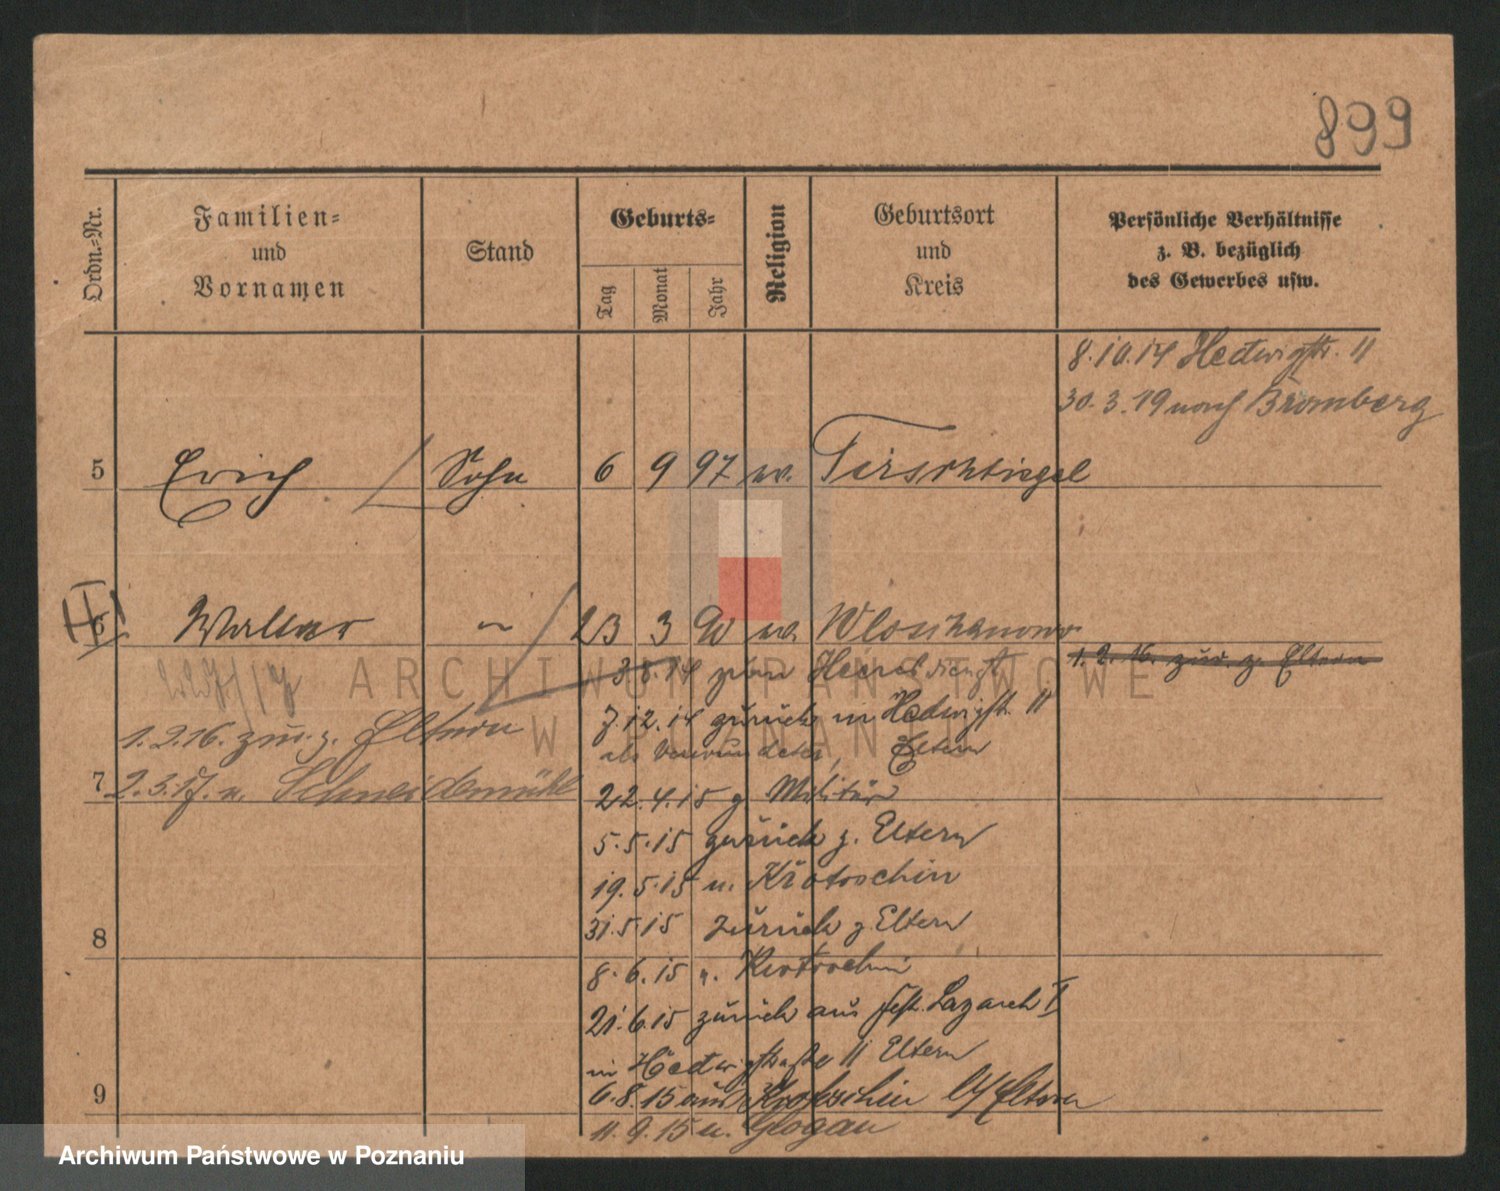 899
Ordn.=Nr.
Familien=
und
Vornamen
Stand
Geburts=
Tag
Monat
Jahr
Religion
Geburtsort
und
Kreis
Persönliche Verhältnisse
z. B. bezüglich
des Gewerbes usw.
8.10.14 Hedwigstr. 11
30.3.19 nach Bromberg
5 Erich Sohn 6 9 97 ev. Tirschtiegel
6 Walter 23 3 90 ev.
1.2.16. zur. z. Eltern
3.8.14 zum Heeresdienst
7.12.14 zurück in Hedwigstr. 11
als Verwundeter, Eltern
1.2.16. zur. z. Eltern
7 2.3.17. n. Schneidemühl
22.4.15 z Militär
5.5.15 zurück z. Eltern
19.5.15 n. Krotoschin
8
31.5.15 zurück z Eltern
8.6.15 n. Krotoschin
21.6.15 zurück aus Fest. Lazareth I
in Hedwigstraße 11 Eltern
9
6.8.15 aus Krotoschin Eltern
11.9.15 n. Glogau
ARCHIWUM PAŃSTWOWE
W POZNANIU
Archiwum Państwowe w Poznaniu